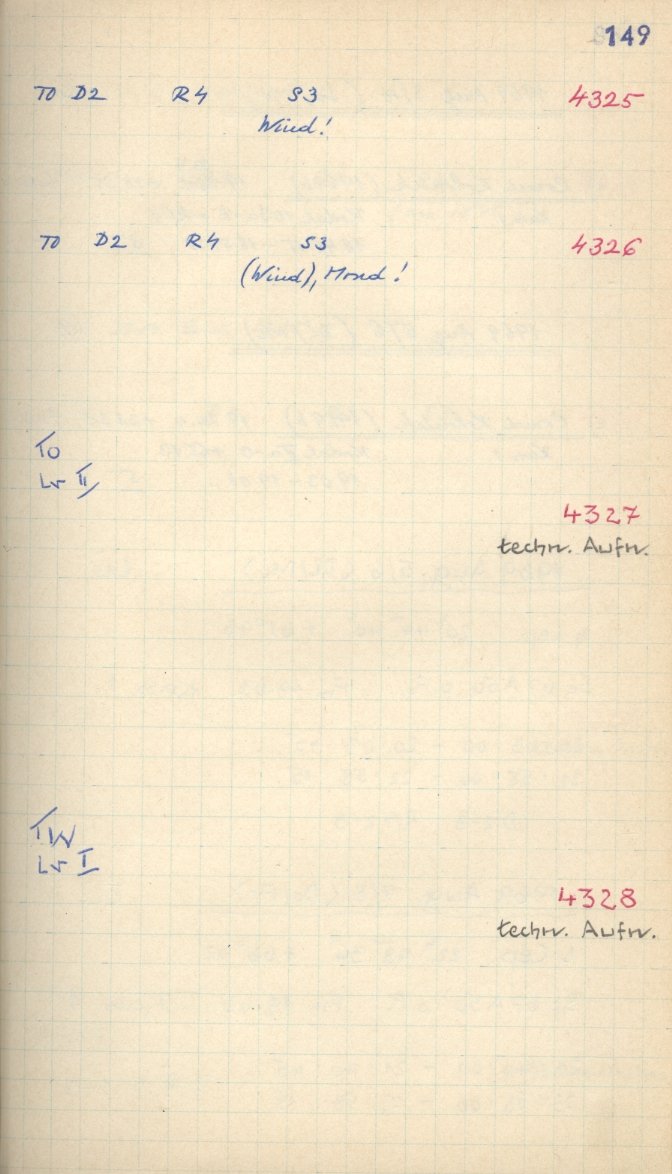 149
TO D2 R4 S3 4325
Wind!
TO D2 R4 S3 4326
(Wind), Mond!
TO
Lr II
4327
techn. Aufn.
TW
Lr I
4328
techn. Aufn.